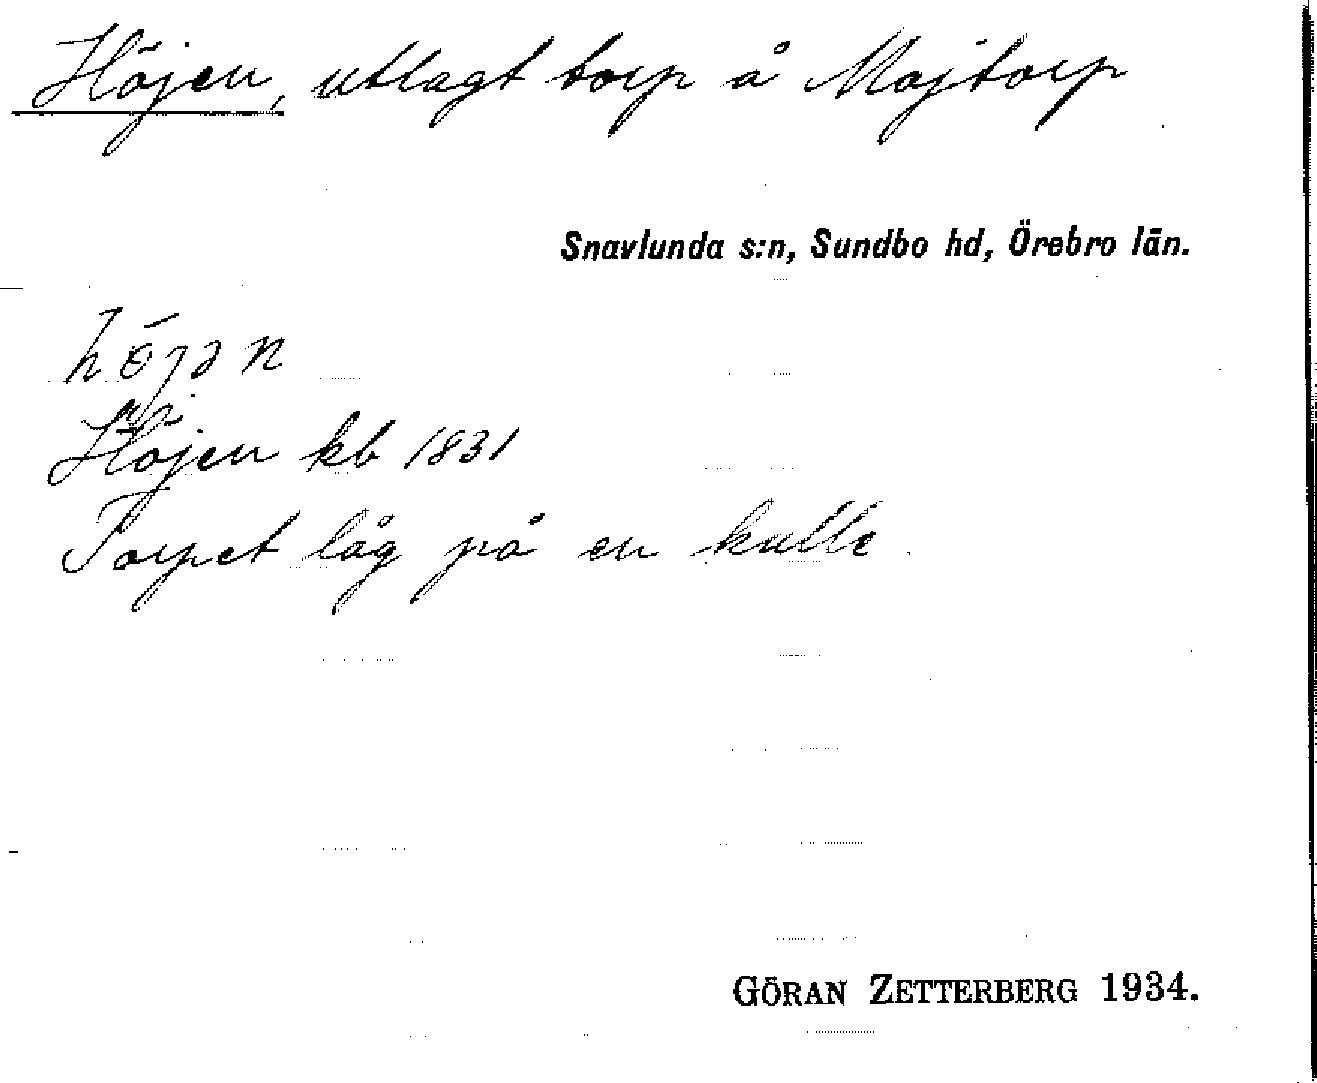 Höjen, utlagt torp å Majtorp
Snavlunda s:n, Sundbo hd, Örebro län.
höjən
Höjen kb 1831
Torpet låg på en kulle.
GÖRAN ZETTERBERG 1934.